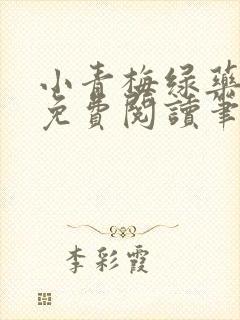 小青梅绿药
免费閱讀筆
李彩霞